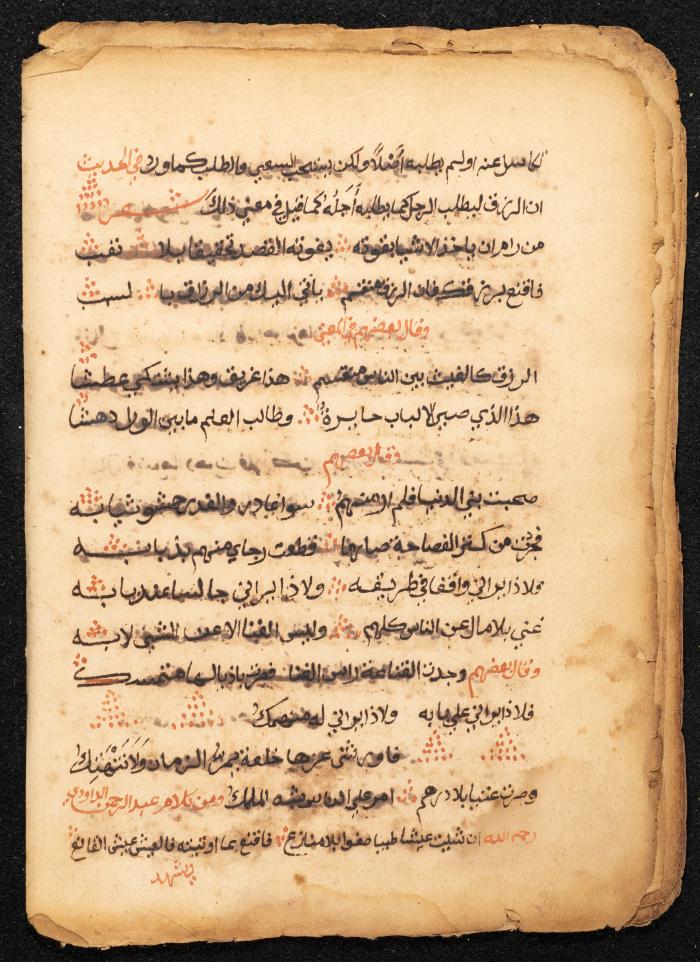 لكاسل عنه او لم يطلبه أصلا ولكن يستحب السعي والطلب كما ورد في الحديث
ان الرزق ليطلب الرجل كما يطلبه أجله كما قيل في معنى ذلك
من رام ان ياخذ الاشيا بقوته يفوته القصد تحقيقا بلا
فاقنع برزقك فان الرزق منقسم ياتي اليك من الرزاق يا
وقال بعضهم في المعنى
الرزق كالغيث بين الناس منقسم هذا غريق وهذا يشتكي عطشا
هذا الذي صير الالباب حايرة وطالب العلم ما بين الورى دهشا
وقال بعضهم
صحبت بني الدنيا فلم ار منهم سوا غادر والغدر حشو ثيابه
من كنز الفصاحة صارما قطعت رجاي منهم بذبابه
ولاذا يراني واقفا في طريقه ولاذا يراني جالسا عند بابه
غني بلا مال عن الناس كلهم وليس الغنا الا عن الشي لا به
وقال بعضهم وجدت القناعة راس الغنا فصرت باذيالها متمسك
فلاذا يراني على بابه ولاذا يراني له منهمك
عزها خلعة يمر الزمان ولا تنهتك
وصرت غنيا بلا درهم امر على الناس شبه الملك ومن كلام عبد الرحمن الداودي
رحمه الله ان شيت عيشا طيبا صفوا بلا منازع فاقنع بما اوتيته فالعيش عيش القانع